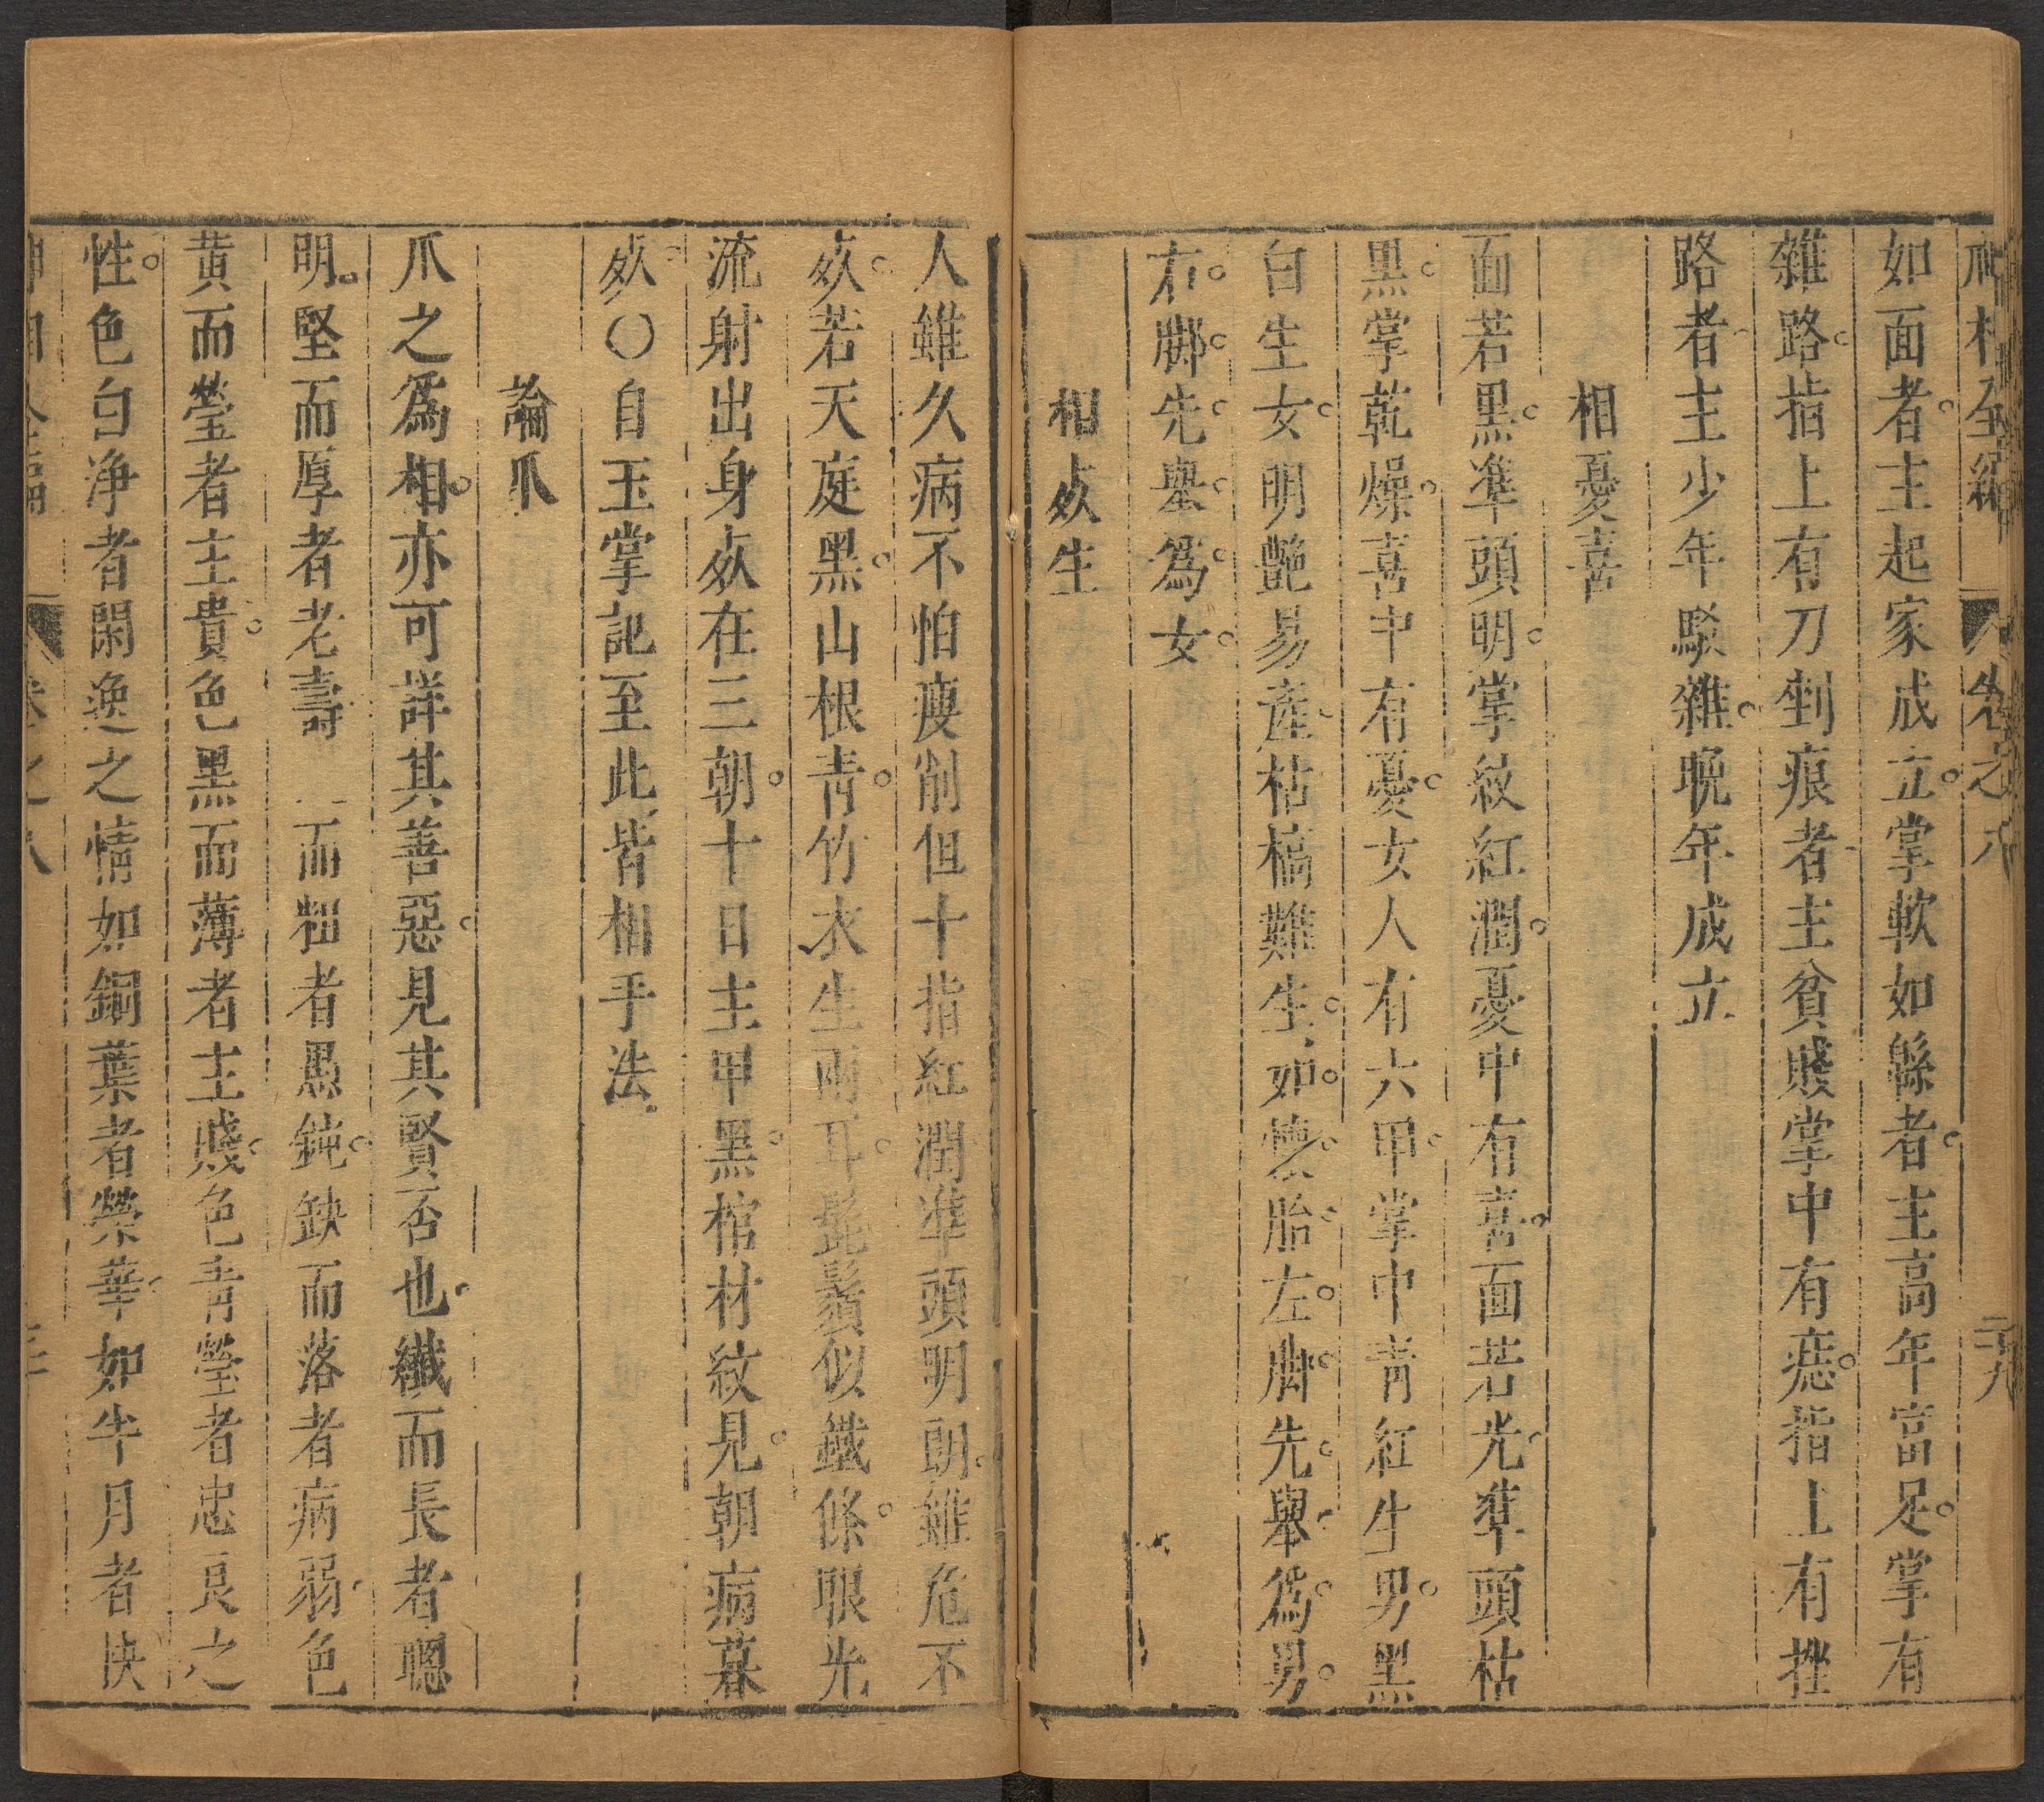 神相全編 卷之八 二十九
如面者主起家成立掌軟如緜者主高年富足掌有
雜路指上有刀剉痕者主貧賤掌中有痣指上有挫
路者主少年駁雜晚年成立
相憂喜
面若黑準頭明掌紋紅潤憂中有喜面若光準頭枯
黑掌乾燥喜中有憂女人有六甲掌中青紅生男黑
白生女明艷易產枯槁難生如懷胎左脚先舉為男
右脚先舉為女
相死生
人雖久病不怕瘦削但十指紅潤準頭明朗雖危不
死若天庭黑山根青竹衣生兩耳髭鬚似鐵條眼光
流射出身死在三朝十日主甲黑棺材紋見朝病暮
死〇自玉掌記至此皆相手法
論爪
爪之為相亦可詳其善惡見其賢否也纖而長者聰
明堅而厚者老壽 而粗者愚鈍缺而落者病弱色
黃而瑩者主貴色黑而薄者主賤色青瑩者忠良之
性色白净者閑逸之情如銅葉者榮華如半月者快
神相全編 卷之八 三十